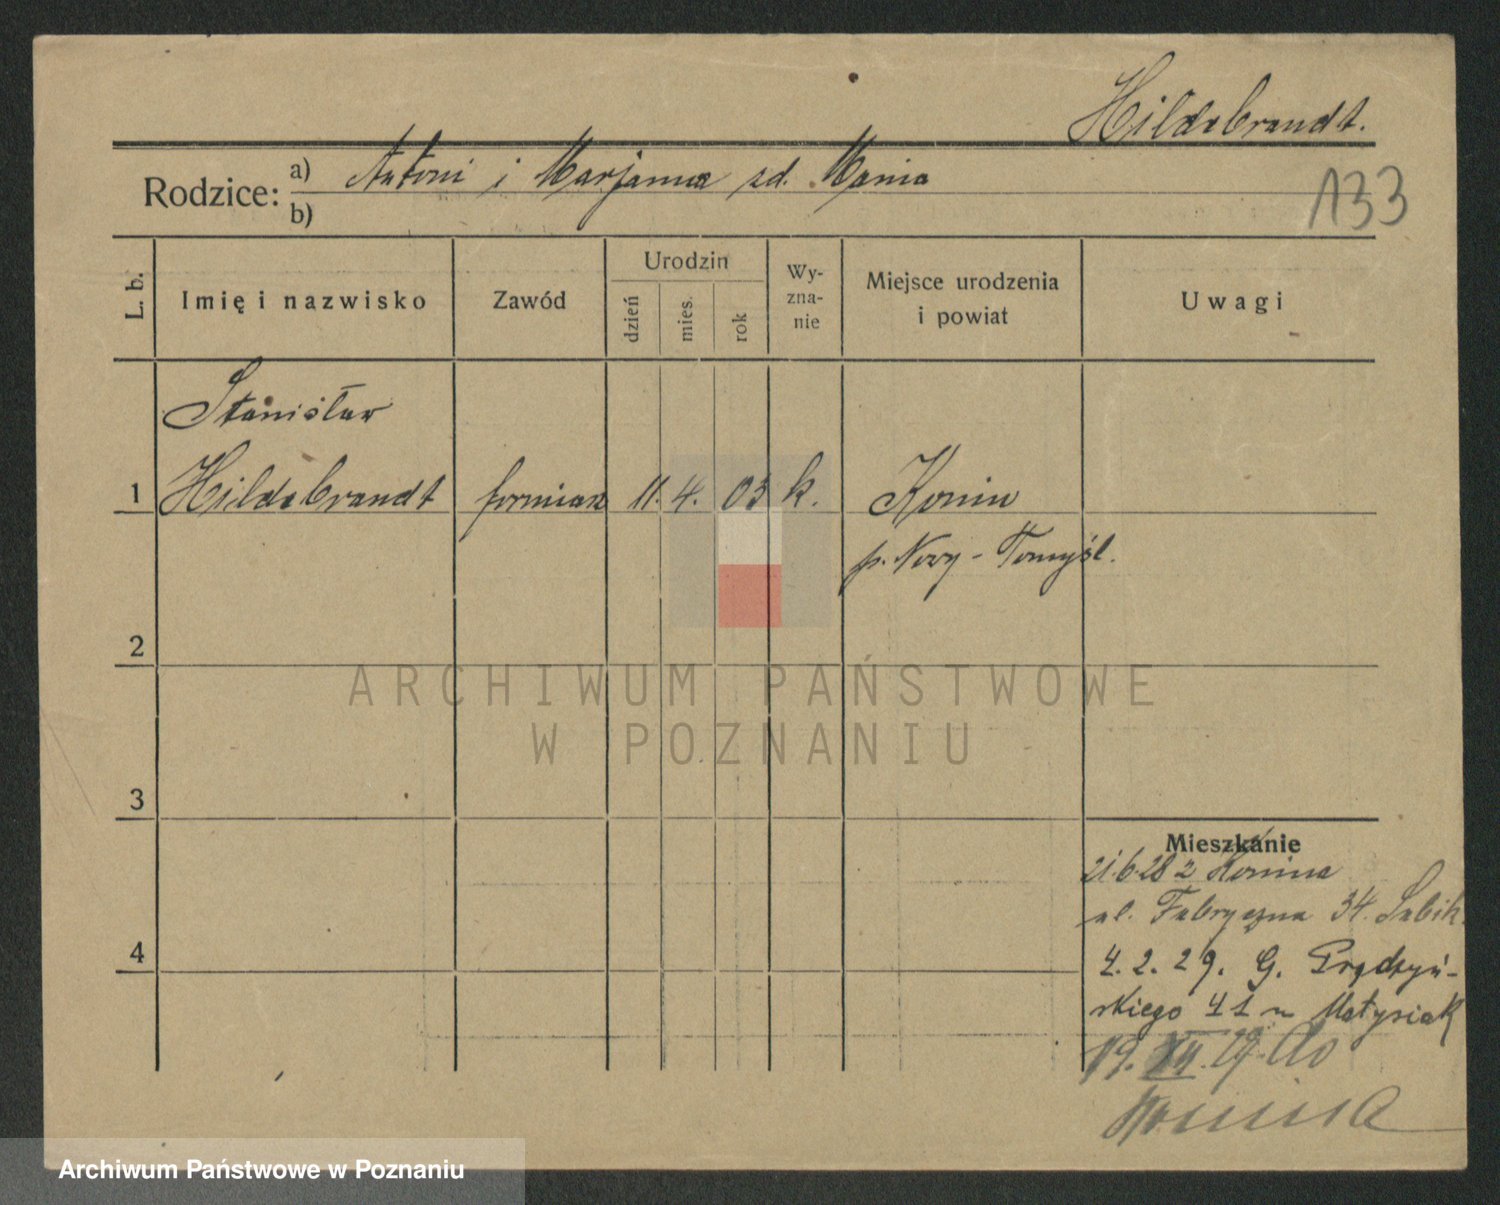 Hildebrandt.
Rodzice: a) Antoni i Marjanna zd. Mania
b)
133
L. b.
Imię i nazwisko
Zawód
Urodzin
dzień
mies.
rok
Wy-
zna-
nie
Miejsce urodzenia
i powiat
Uwagi
Stanisław
1 Hildebrandt forniarz 11. 4. 03 k. Konin
p. Nowy-Tomyśl.
2
ARCHIWUM PAŃSTWOWE
W POZNANIU
3
Mieszkanie
21.6.28 z Konina
ul. Fabryczna 34. Subik.
4
4.2.29. G. Prądzyń-
skiego 41 u Matysiak
19. XII. 29. do
Konina
Archiwum Państwowe w Poznaniu